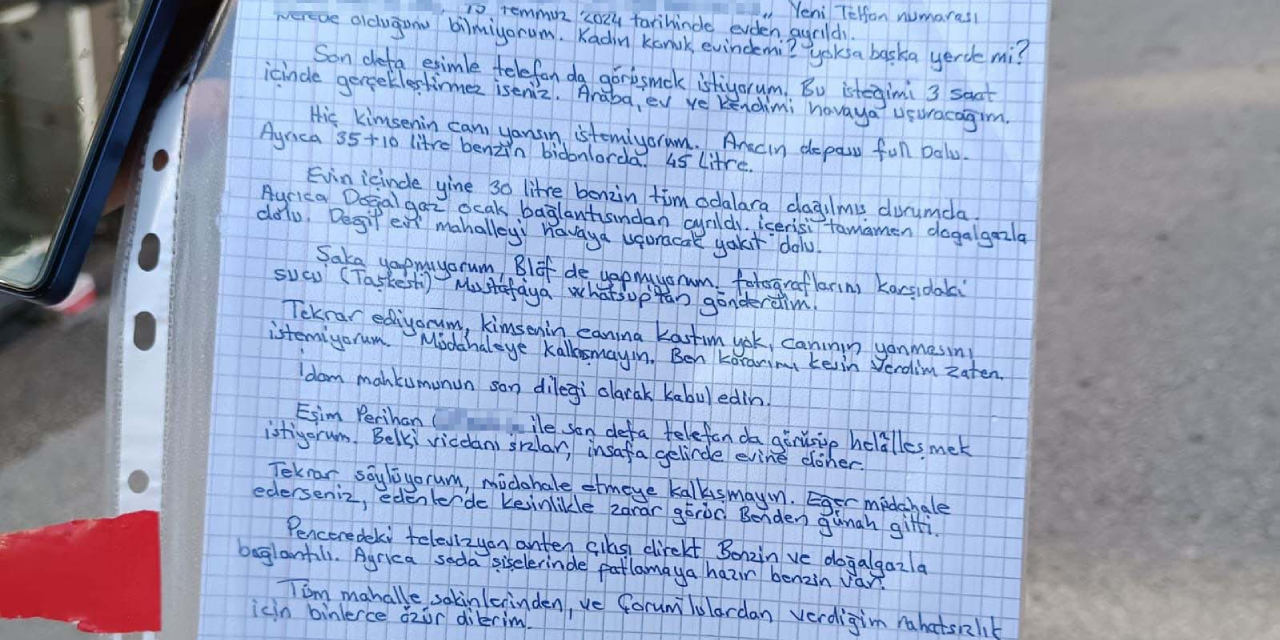 temmuz 2024 tarihinde evden ayrıldı. Yeni Telfon numarası
Nerede olduğunu bilmiyorum. Kadın konuk evindemi? yoksa başka yerde mi?
Son defa eşimle telefon da görüşmek istiyorum. Bu isteğimi 3 saat
içinde gerçekleştirmez iseniz. Araba, ev ve kendimi havaya uçuracağım.
Hiç kimsenin canı yansın istemiyorum. Aracın deposu full Dolu.
Ayrıca 35+10 litre benzin bidonlarda. 45 Litre.
Evin içinde yine 30 litre benzin tüm odalara dağılmış durumda.
Ayrıca Doğal gaz ocak bağlantısından ayrıldı. içerisi tamamen doğalgazla
dolu. Değil evi mahalleyi havaya uçuracak yakıt dolu.
Şaka yapmıyorum, Blöf de yapmıyorum, fotoğraflarını karşıdaki
sucu (Taşkesti) Mustafaya whatsup'tan gönderdim.
Tekrar ediyorum, kimsenin canına kastım yok, canının yanmasını
istemiyorum. Müdahaleye kalkışmayın. Ben kararımı kesin verdim zaten.
İdam mahkumunun son dileği olarak kabul edin.
Eşim Perihan ile son defa telefon da görüşüp helâlleşmek
istiyorum. Belki vicdanı sızlar, insafa gelirde evine döner.
Tekrar söylüyorum, müdahale etmeye kalkışmayın. Eğer müdahale
ederseniz, edenler'de kesinlikle zarar görür. Benden günah gitti.
Penceredeki televizyon anten çıkışı direkt Benzin ve doğalgazla
bağlantılı. Ayrıca soda şişelerinde patlamaya hazır benzin var.
Tüm mahalle sakinlerinden, ve Çorumlulardan verdiğim rahatsızlık
için binlerce özür dilerim.